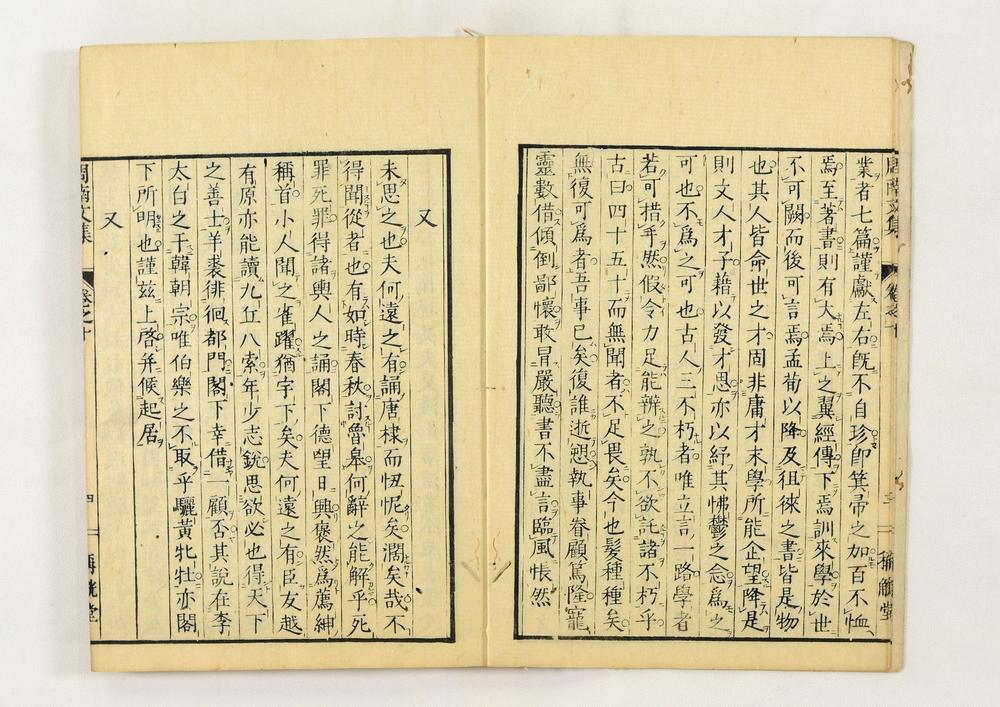 業者七篇謹獻左右既不自珍即箕帚之加百不恤
焉至著書則有大焉上之翼經傳下焉訓來學於世
不可闕而後可言焉孟荀以降及徂徠之書皆是物
也其人皆命世之才固非庸才末學所能企望降是
則文人才子藉以發才思亦以紓其怫鬱之念爲之
可也不爲之可也古人三不朽者唯立言一路學者
若可措手然假令力足能辨之孰不欲託諸不朽乎
古曰四十五十而無聞者不足畏矣今也髮種種矣
無復可爲者吾事已矣復誰逝愬執事眷顧篤隆寵
靈數借傾倒鄙懷敢冒嚴聽書不盡言臨風悵然
又
未思之也夫何遠之有誦唐棣而忸怩矣濶矣哉不
得聞從者也有如時春秋討魯皋何辭之能解乎死
罪死罪得諸輿人之誦閣下德望日興褒然爲薦紳
稱首小人聞之雀躍猶字下矣夫何遠之有臣友越
有原亦能讀九丘八索年少志銳思欲必也得天下
之善士羊裘徘徊都門閣下幸借一顧否其說在李
太白之干韓朝宗唯伯樂之不取乎驪黃牝牡亦閣
下所明也謹兹上啓并候起居
又
周南文集
卷之十
四
稱觥堂